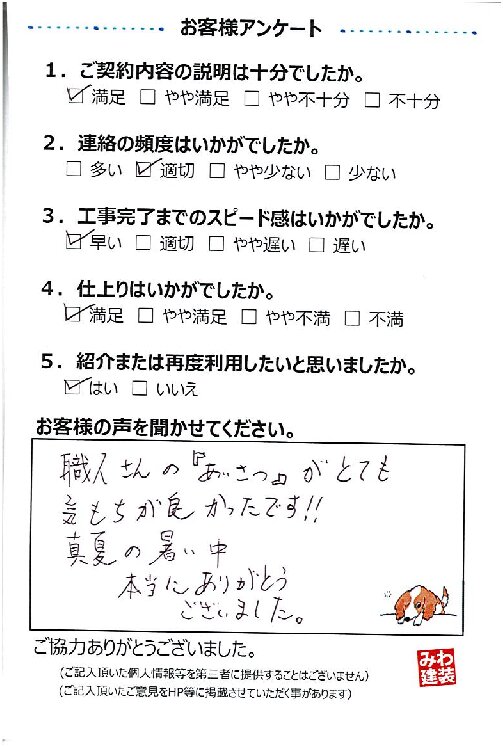 お客様アンケート
1. ご契約内容の説明は十分でしたか。
☑ 満足 □ やや満足 □ やや不十分 □ 不十分
2. 連絡の頻度はいかがでしたか。
□ 多い ☑ 適切 □ やや少ない □ 少ない
3. 工事完了までのスピード感はいかがでしたか。
☑ 早い □ 適切 □ やや遅い □ 遅い
4. 仕上りはいかがでしたか。
☑ 満足 □ やや満足 □ やや不満 □ 不満
5. 紹介または再度利用したいと思いましたか。
☑ はい □ いいえ
お客様の声を聞かせてください。
職人さんの『あいさつ』がとても
気もちが良かったです!!
真夏の暑い中
本当にありがとう
ございました。
ご協力ありがとうございました。
(ご記入頂いた個人情報等を第三者に提供することはございません)
(ご記入頂いたご意見をHP等に掲載させていただく事があります)
みわ
建装